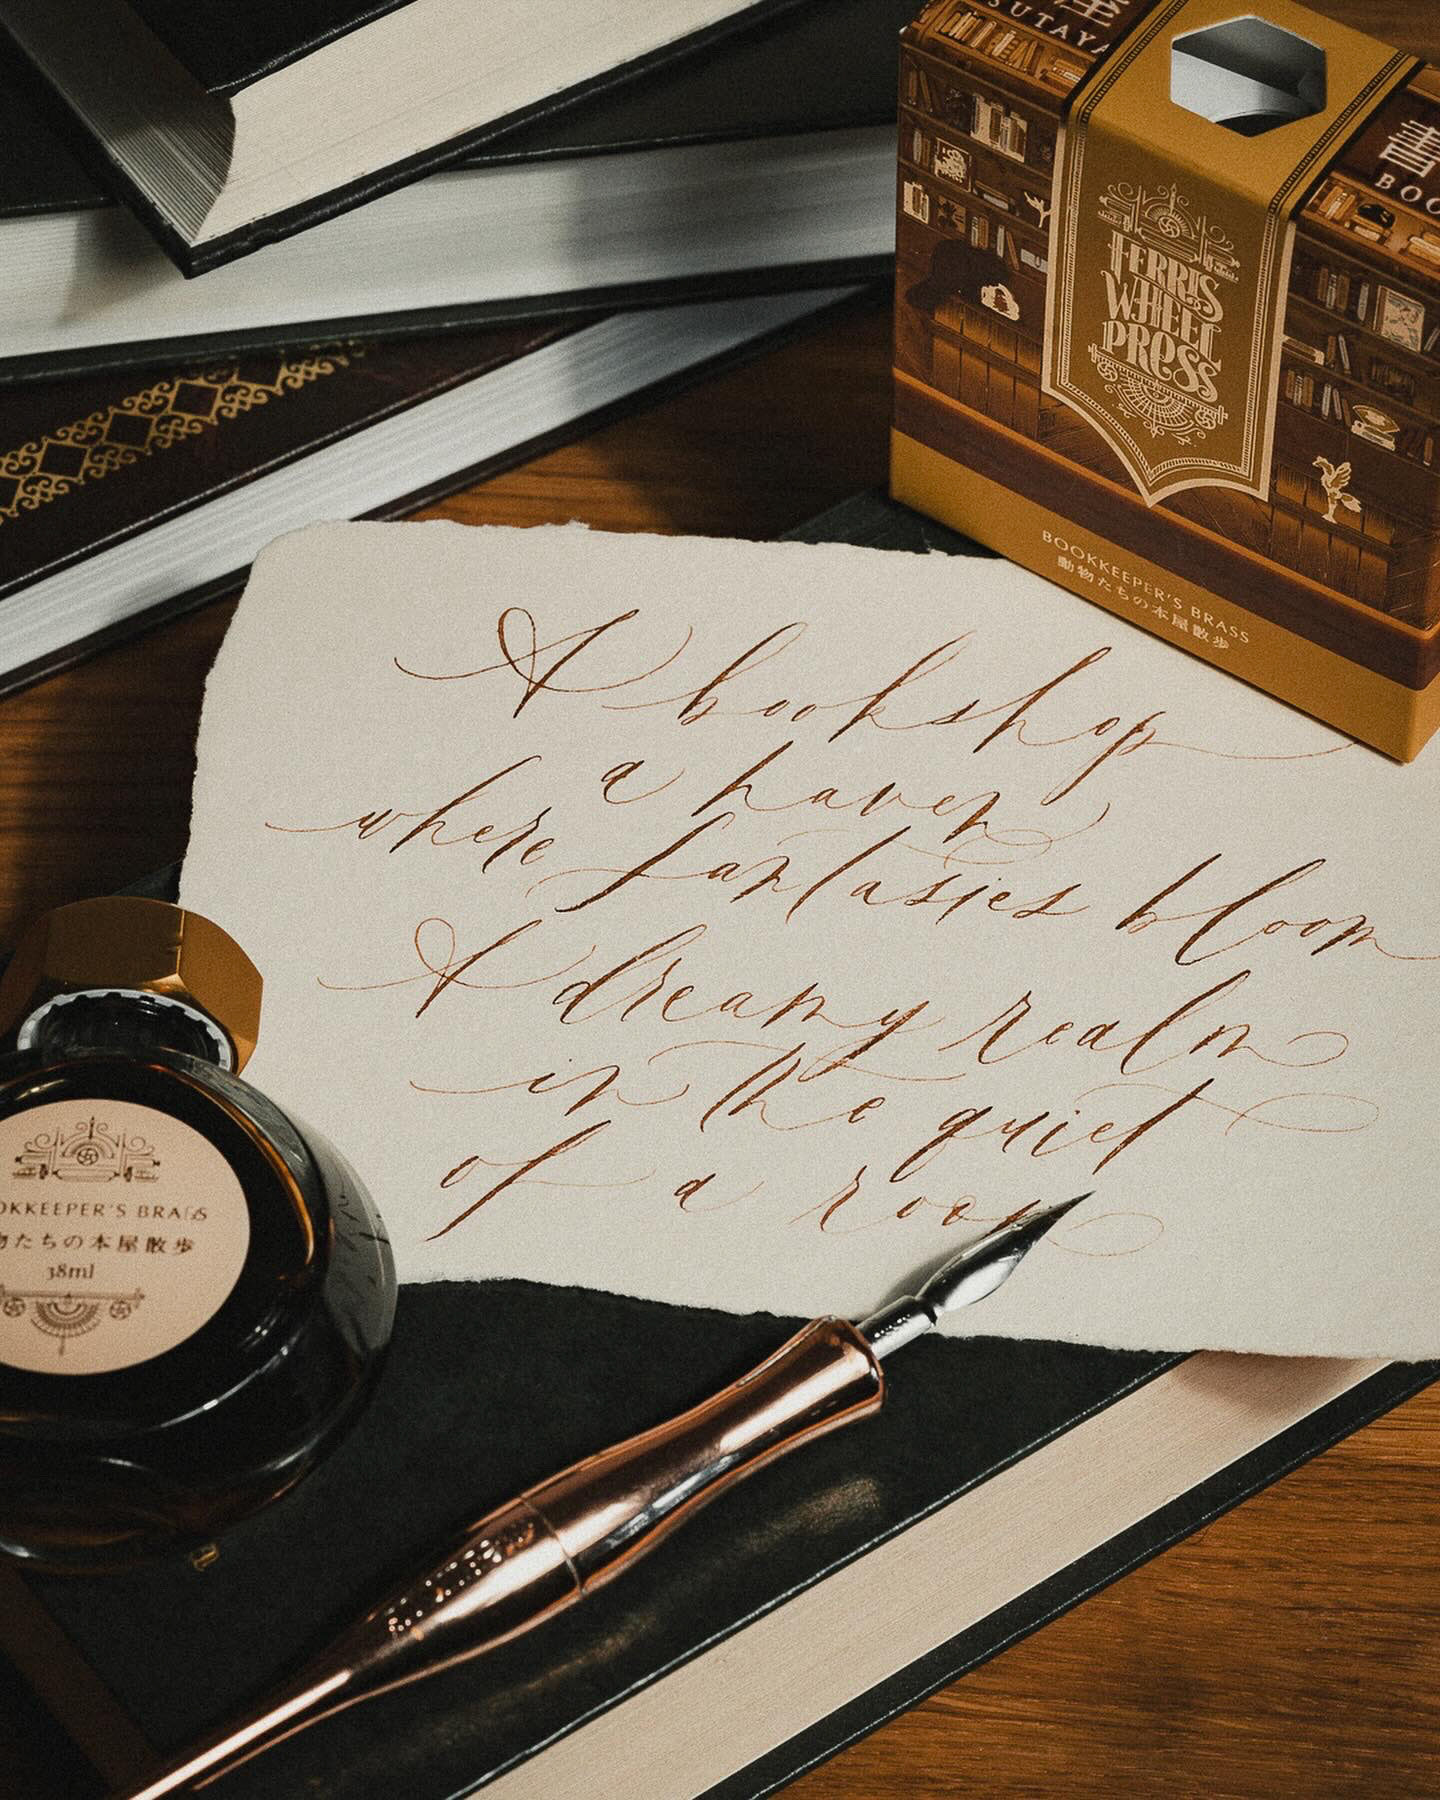 SUTAYA
書
BOO
FERRIS
WHEEL
PRESS
BOOKKEEPER'S BRASS
動物たちの本屋散歩
A bookshop
a haven
where fantasies bloom
A dreamy realm
in the quiet
of a room
OKKEEPER'S BRASS
物たちの本屋散歩
38ml